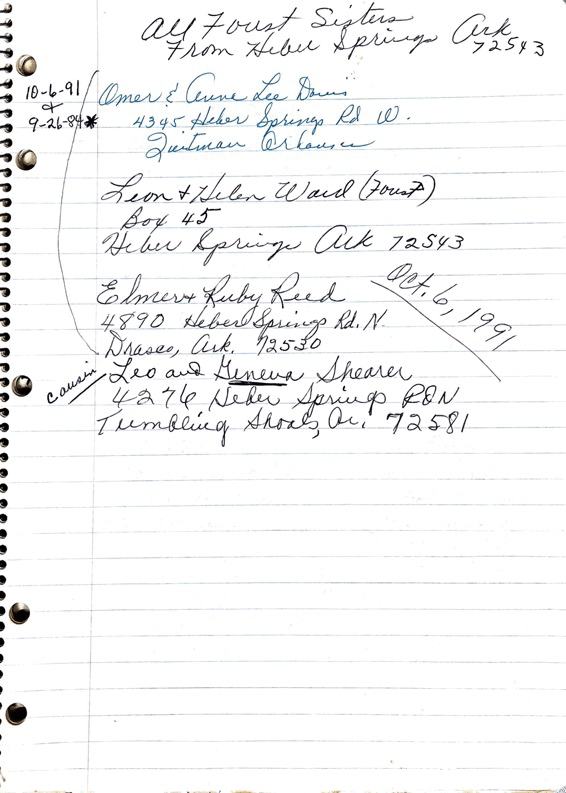 All Foust Sisters
From Heber Springs Ark
72543
10-6-91
+
9-26-84*
Omer & Anne Lee Davis
4345 Heber Springs Rd W.
Quitman Arkansas
Leon + Helen Ward (Foust)
Box 45
Heber Springs Ark 72543
Elmer + Ruby Reed
4890 Heber Springs Rd. N.
Drasco, Ark. 72530
Oct. 6, 1991
cousin
Leo and Geneva Shearer
4276 Heber Springs RD N
Tumbling Shoals, Ar. 72581